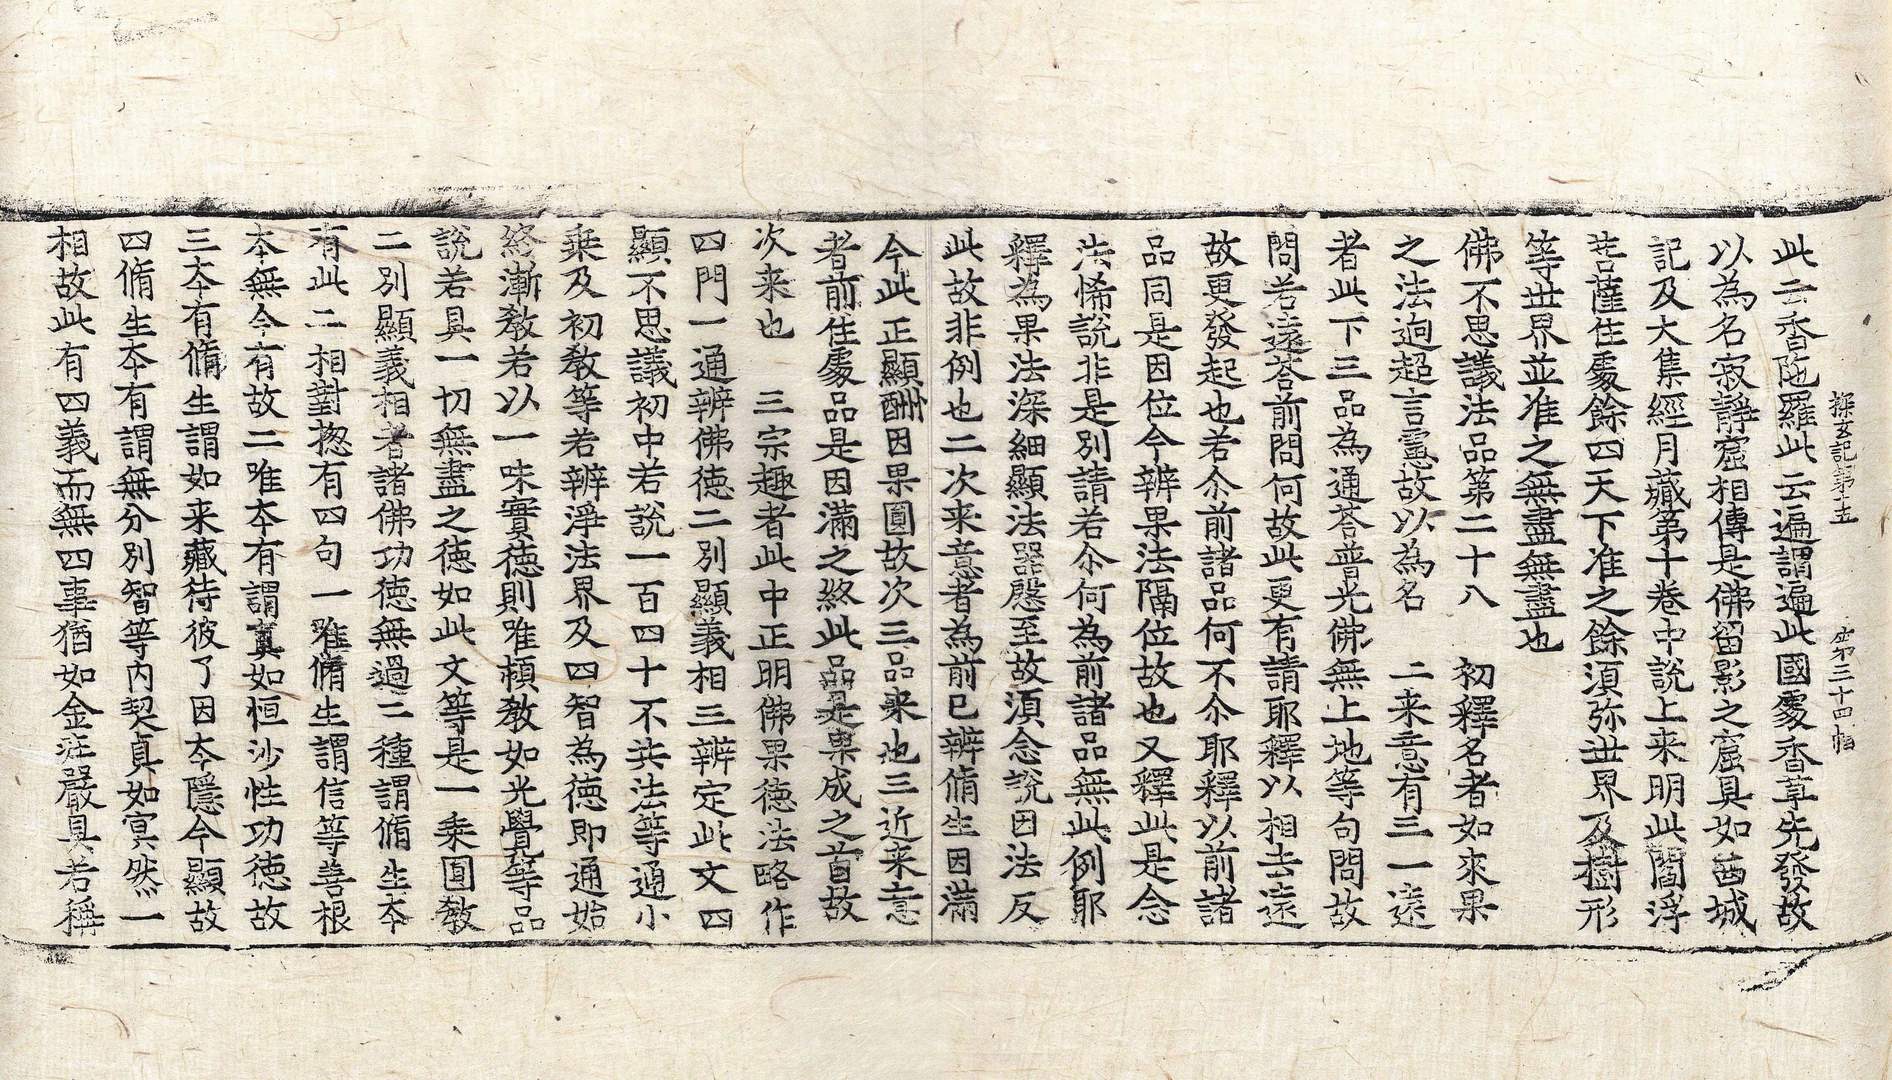 探玄記第十五　　第三十四幅
此云香陁羅此云遍謂遍此國處香草先發故
以為名寂靜窟相傳是佛留影之窟具如西域
記及大集經月藏第十卷中說上来明此閻浮
菩薩住處餘四天下准之餘湏弥世界及樹形
等世界並准之無盡無盡也
佛不思議法品第二十八　初釋名者如來果
之法逈超言慮故以為名　二来意有三一遠
者此下三品為通荅普光佛無上地等句問故
問若遠荅前問何故此更有請耶釋以相去遠
故更發起也若尒前諸品何不尒耶釋以前諸
品同是因位今辨果法隔位故也又釋此是念
法悕說非是別請若尒何為前諸品無此例耶
釋為果法深細顯法器慇至故湏念說因法反
此故非例也二次来意者為前已辨脩生因滿
今此正顯酬因果圓故次三品来也三近来意
者前住處品是因滿之終此品是果成之首故
次来也　三宗趣者此中正明佛果德法略作
四門一通辨佛德二別顯義相三辨定此文四
顯不思議初中若說一百四十不共法等通小
乘及初教等若辨淨法界及四智為德即通始
終漸教若以一味實德則唯頓教如光覺等品
說若具一切無盡之德如此文等是一乘圓教
二別顯義相者諸佛功德無過二種謂脩生夲
有此二相對揔有四句一唯脩生謂信等善根
夲無今有故二唯夲有謂真如恒沙性功德故
三夲有脩生謂如来藏待彼了因夲隱今顯故
四脩生夲有謂無分別智等內契真如㝠然一
相故此有四義而無四事猶如金莊嚴具若稱